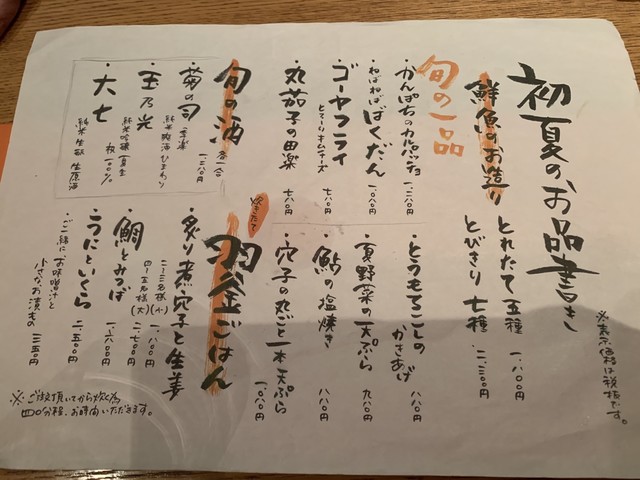 初夏のお品書き
※表示価格は税抜です。
鮮魚のお造り
とれたて五種 一、八〇〇円
とびきり七種 二、三〇〇円
旬の一品
かんぱちのカルパッチョ 一、二八〇円
ねばねばばくだん 一、〇八〇円
ゴーヤフライ とろ〜りキムチーズ 七八〇円
丸茄子の田楽 七八〇円
とうもろこしのかきあげ 八八〇円
夏野菜の天ぷら 九八〇円
鮎の塩焼き 八八〇円
穴子の丸ごと一本天ぷら 一、〇八〇円
旬の酒 各一合 一、二八〇円
・菊の司 季楽 純米 ひまわり
・玉乃光 純米吟醸 夏生 100%
・大七 純米生酛 生原酒
炊きたて
羽釜ごはん
二〜三名様(小)
四〜五名様(大)
・炙り煮穴子と生姜 一、八〇〇円 二、七〇〇円
・鯛とみつば 一、六〇〇円
・うにといくら 二、五〇〇円
・ご一緒に お味噌汁と小さなお漬もの 三五〇円
※ご注文頂いてから炊く為
四〇分程、お時間いただきます。